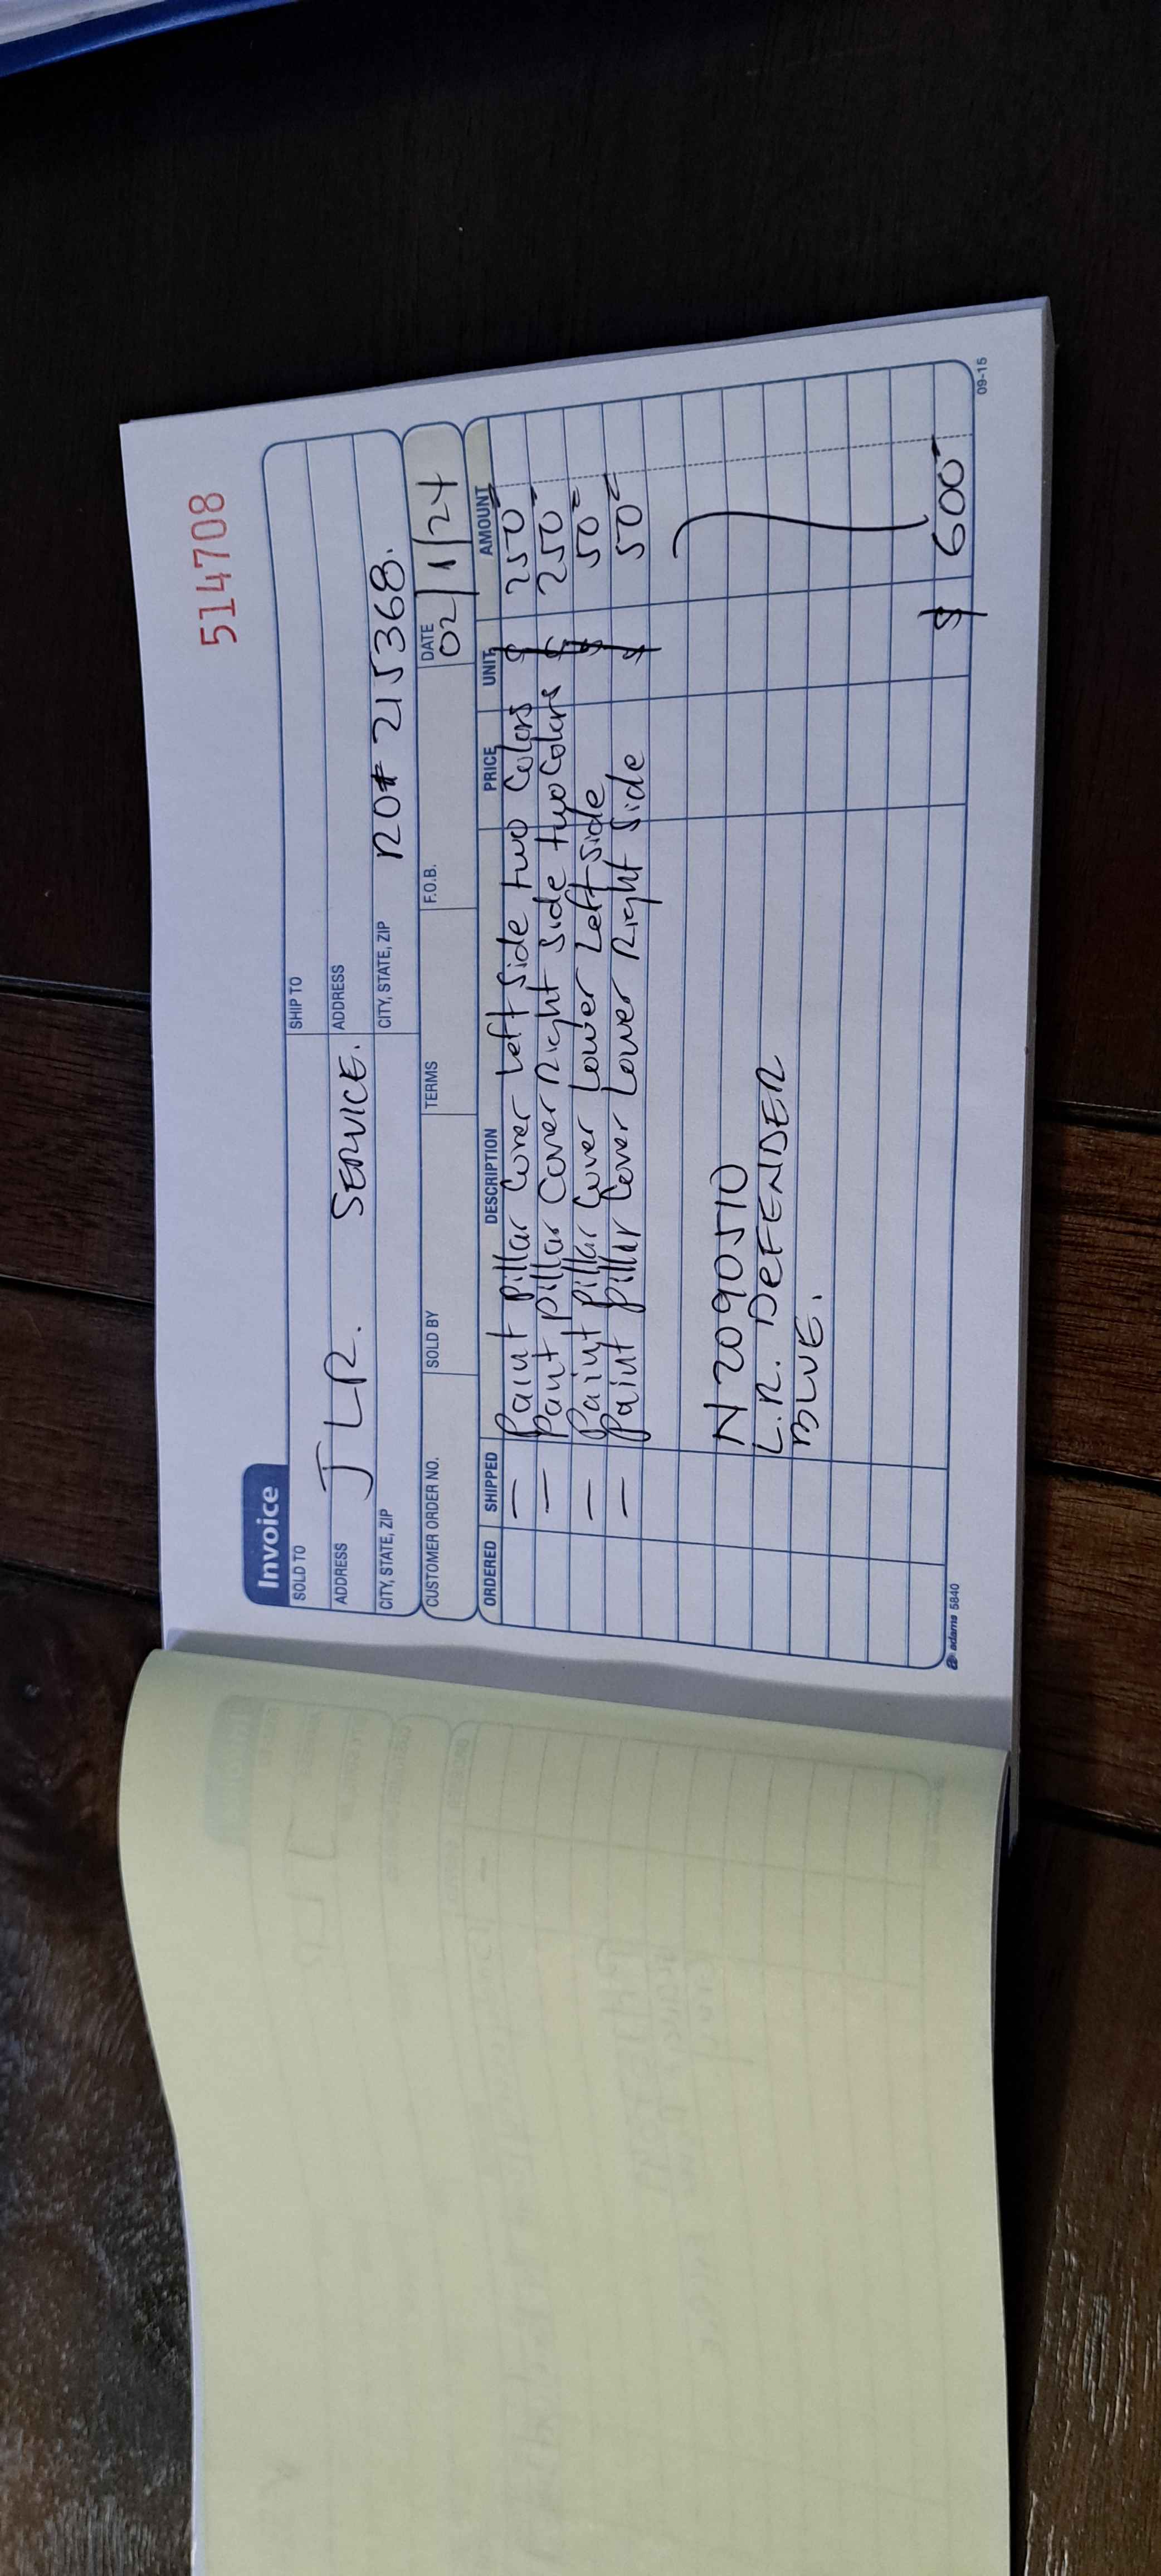 514708
Invoice
SOLD TO
SHIP TO
ADDRESS
JLR. SERVICE.
ADDRESS
CITY, STATE, ZIP
CITY, STATE, ZIP
RO# 215368.
CUSTOMER ORDER NO.
SOLD BY
TERMS
F.O.B.
DATE
02/1/24
ORDERED SHIPPED DESCRIPTION PRICE UNIT AMOUNT
— Paint pillar Cover Left Side two Colors $ 250
— Paint pillar Cover Right Side two Colors $ 250
— Paint pillar Cover Lower Left Side $ 50
— Paint pillar Cover Lower Right Side $ 50
N2090510
L.R. DEFENDER
BLUE.
$ 600
adams 5840
09-15